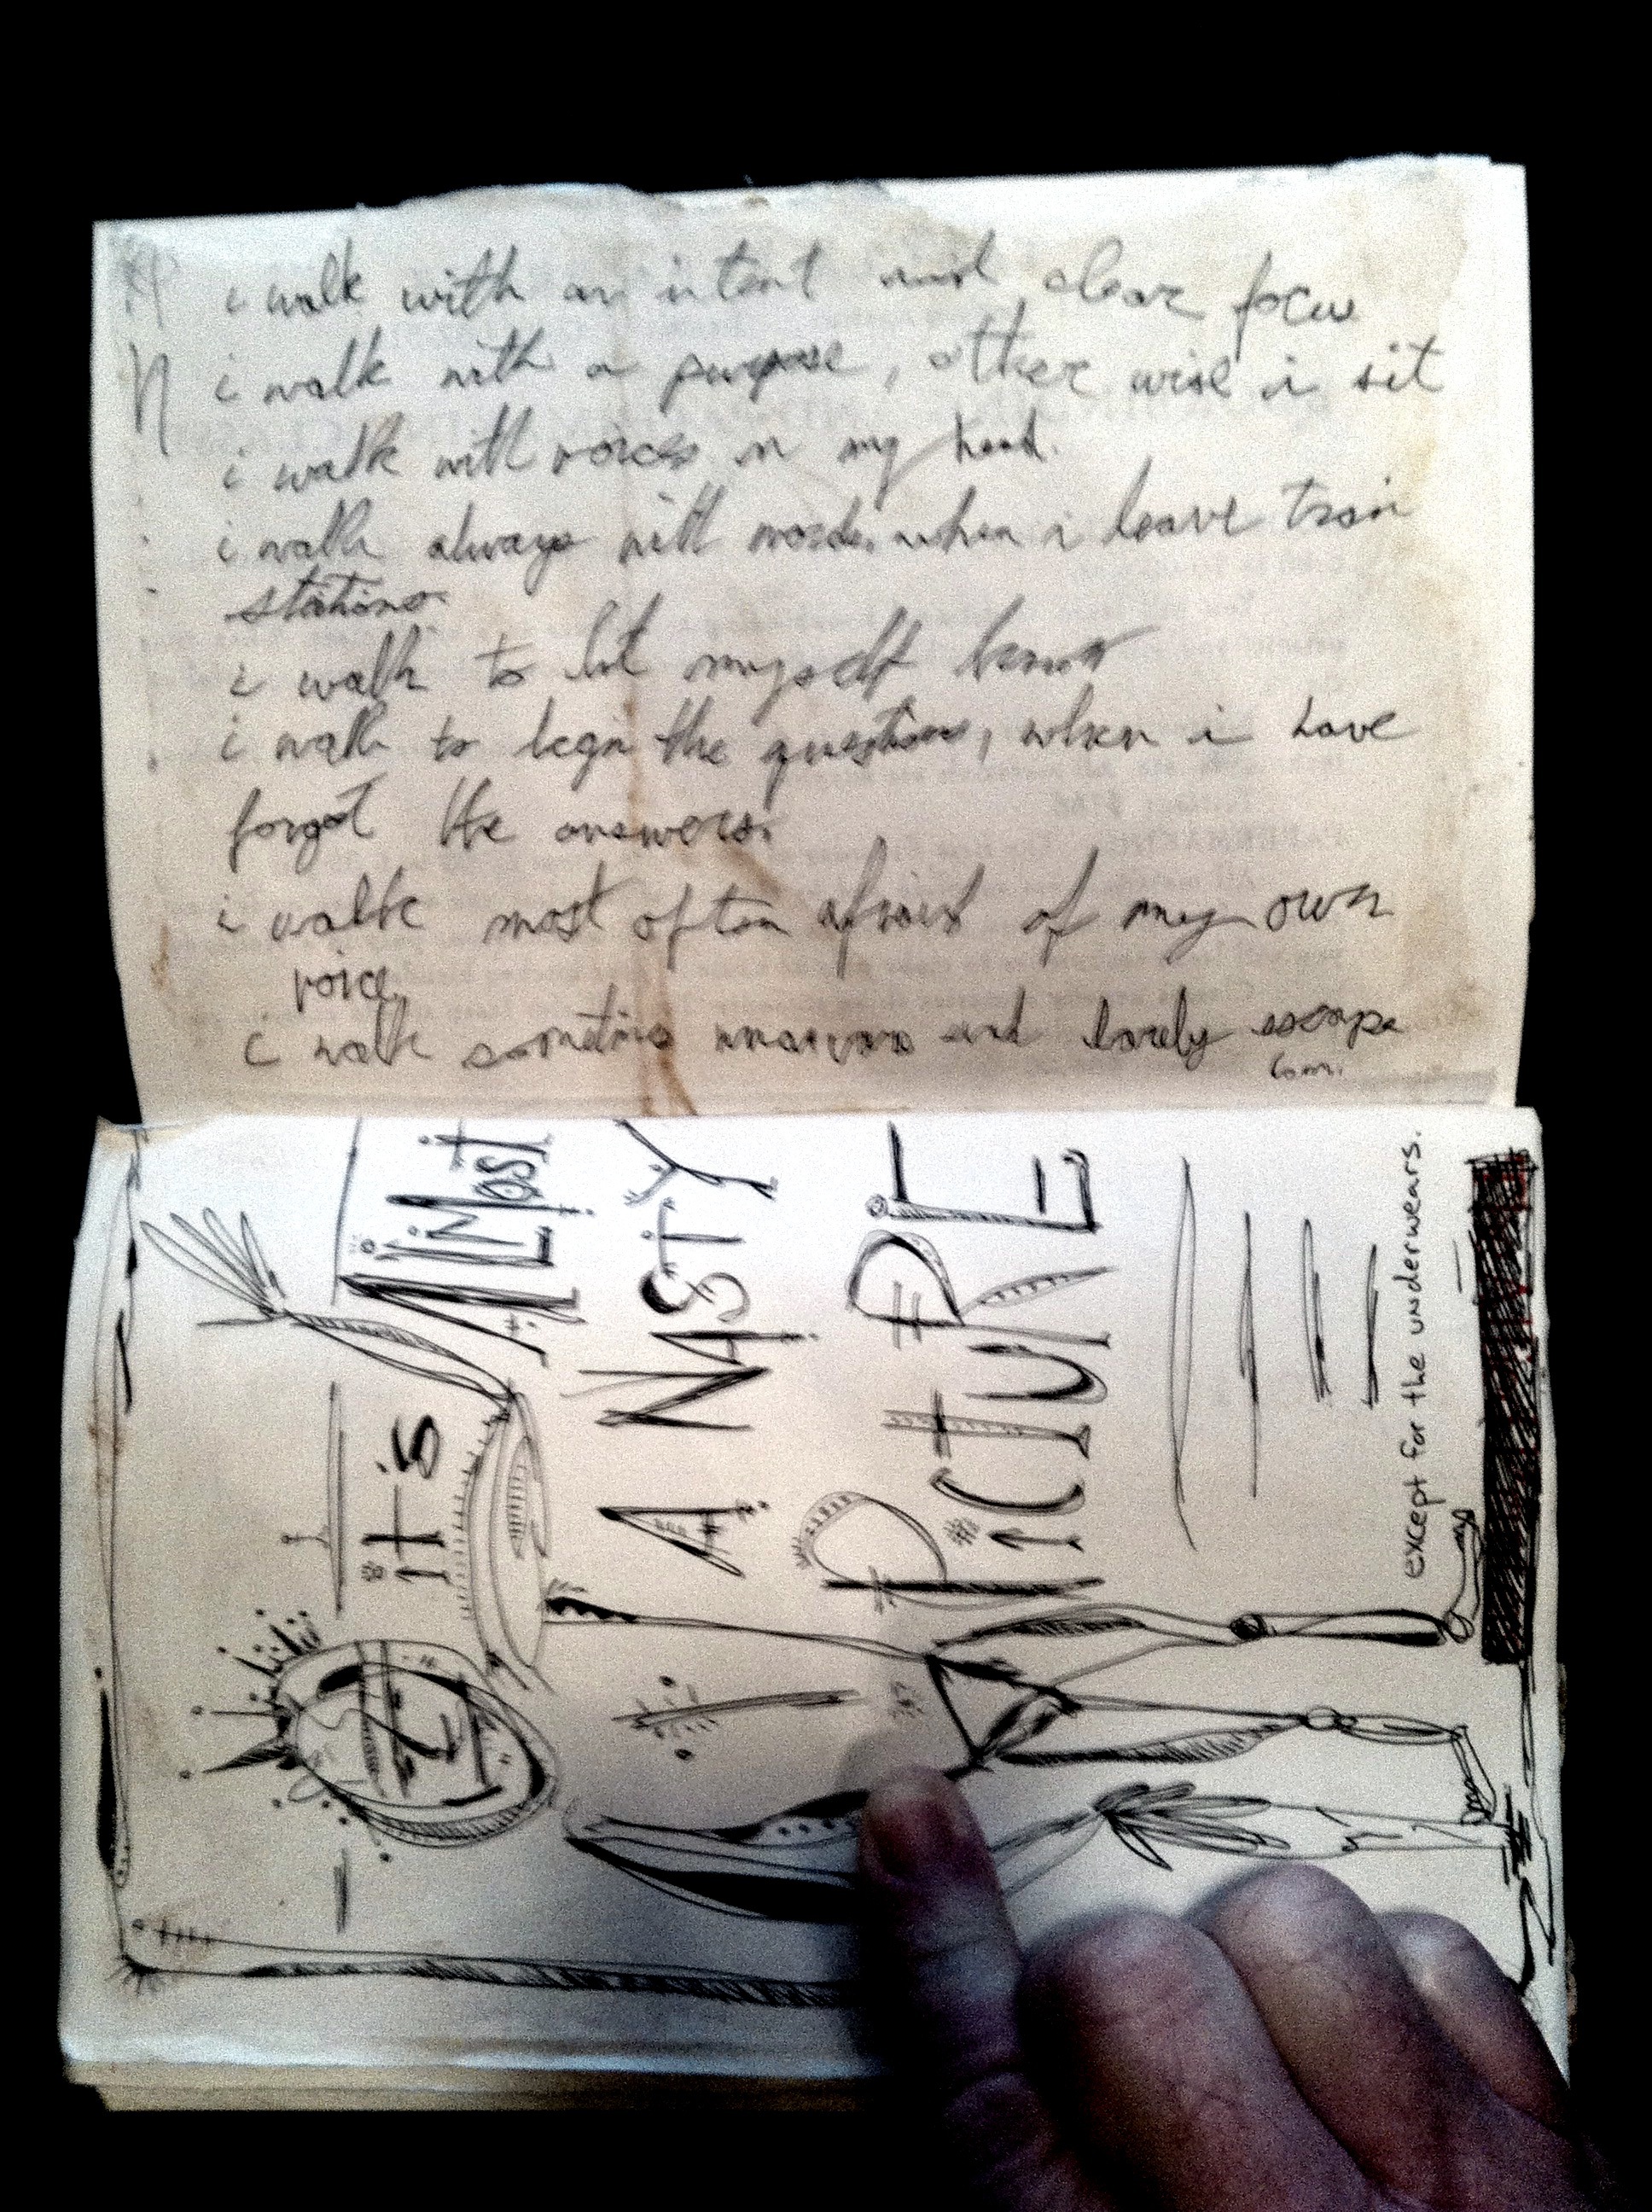 i walk with an intent and clear focus
i walk with a purpose, other wise i sit
i walk with voices in my head.
i walk always with words. when i leave train
stations
i walk to let myself know
i walk to begin the questions, when i have
forgot the answers.
i walk most often afraid of my own
voice,
i walk sometimes and barely escape
its AlMost
A NASTY
PICTURE
except for the underwears.